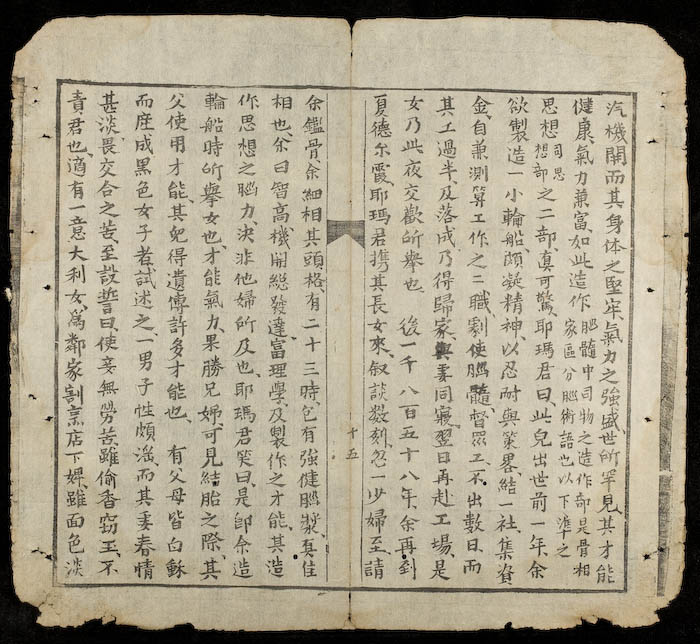 汽機開而其身体之堅牢、氣力之強盛、世所罕見、其才能
健康、氣力兼富、如此造作 肥髓中司物之造作部是骨相
家區分腦術語也以下準之
思想 司思
想部 之二部、真可驚、耶瑪君曰、此兒出世前一年、余
欲製造一小輪船、頗凝精神、以忍耐與策畧、結一社、集資
金、自兼測算工作之二職、劇使腦髓、督眾工、不出數日、而
其工過半、及落成、乃得歸家、與妻同寢、翌日再赴工場、是
女乃此夜交歡所擧也、 後一千八百五十八年、余再到
夏德尓霞、耶瑪君携其長女來、叙談数刻、忽一少婦至、請
十五
余鑑骨、余細相其頭格、有二十三時、包有強健腦漿、真佳
相也、余曰、智高機開、總發達、富理學、及製作之才能、其造
作思想之腦力、决非他婦所及也、耶瑪君笑曰、是卽余造
輪船時所擧女也、才能氣力、果勝兄姊、可見結胎之際、其
父使用才能、其兒得遺傳許多才能也、 有父母皆白穌
而産成黒色女子者、試述之、一男子性頗淫、而其妻春情
甚淡、畏交合之苦、至設誓曰、使妾無勞苦、雖偷香窃玉、不
責君也、適有一意大利女、爲鄰家割烹店下婢、雖面色淡